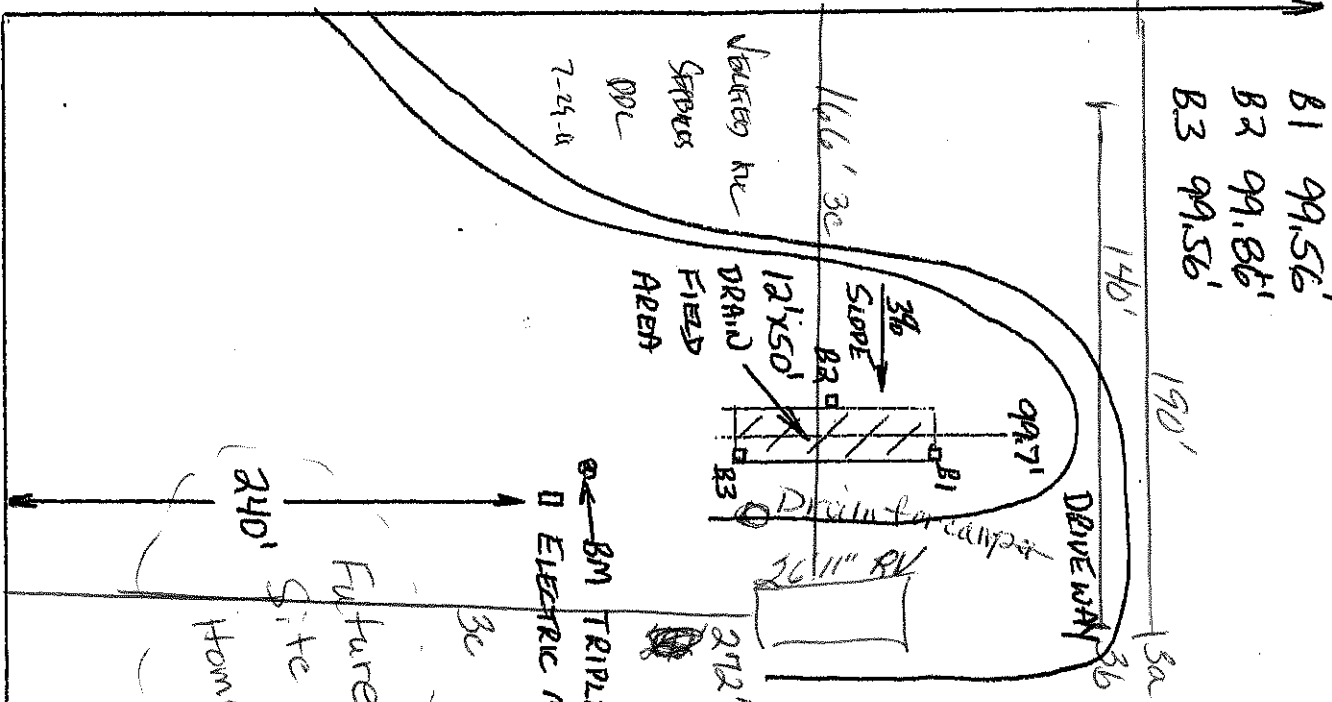 B1 99.56'
B2 99.86'
B3 99.56'
190'
140'
3a
3b
166' 3c
Verified the
Setbacks
DDL
3%
SLOPE
12'x50'
DRAIN
FIELD
AREA
B2
B1
B3
99.7'
DRIVEWAY
Drain for camper
26'11" RV
272'
3c
BM TRIPL
ELECTRIC
240'
Future
Site
Hom